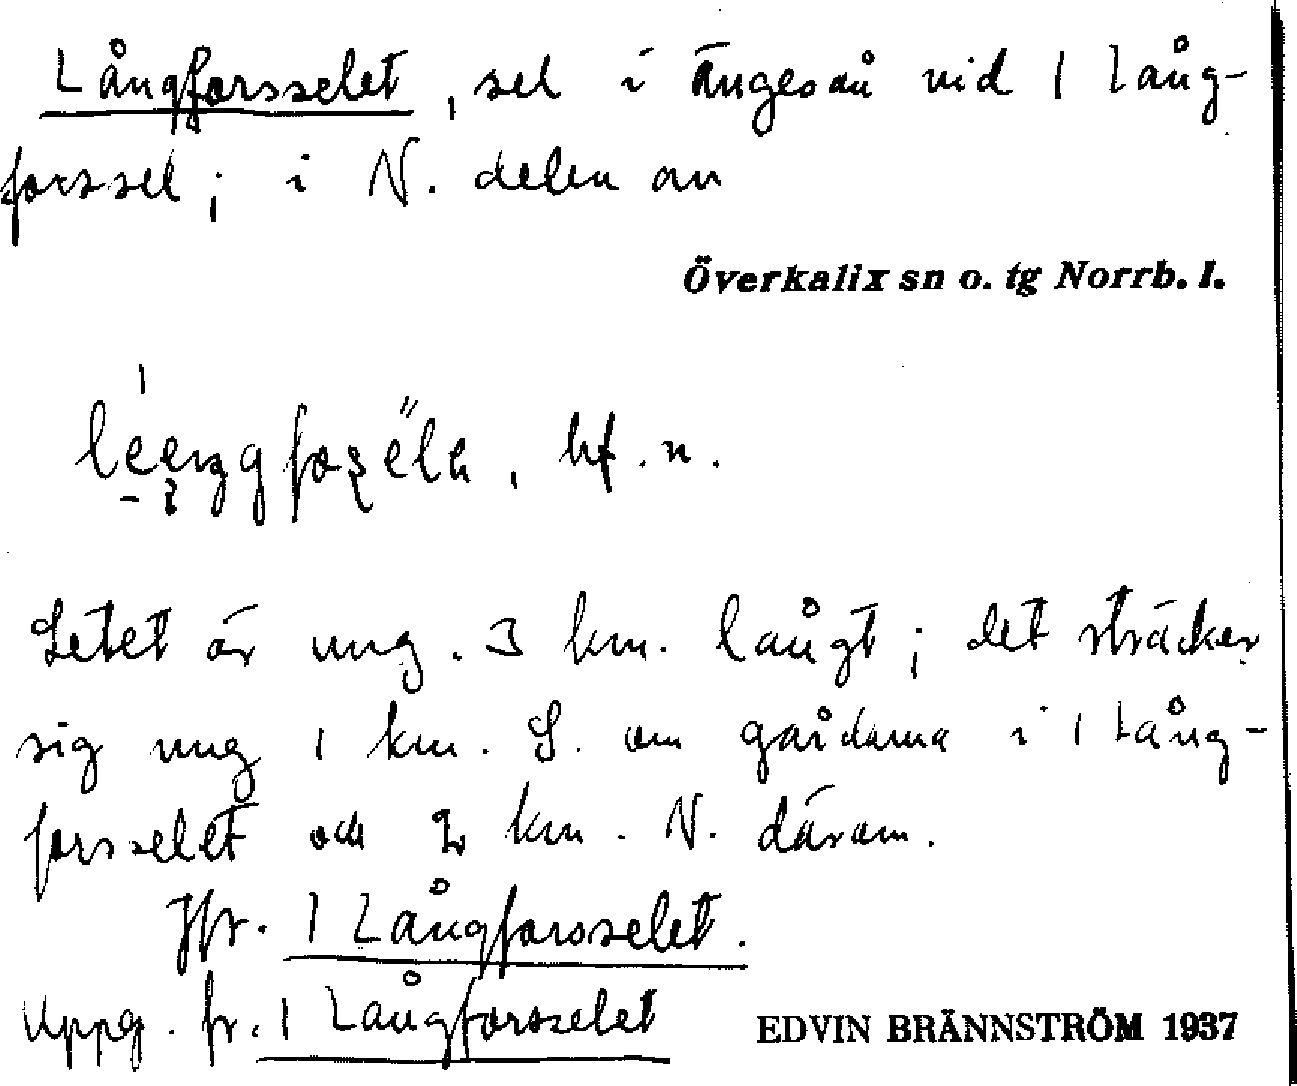 Långforsselet, sel i Ängesån vid 1 Lång-
forssel; i N. delen av
Överkalix sn o. tg Norrb. l.
bf. n.
Selet är ung. 3 km. långt; det sträcker
sig ung 1 km. S. om gårdarna i 1 Lång-
forsselet och 2 km. N. därom.
Jfr. 1 Långforsselet.
Uppg. fr. 1 Långforsselet
EDVIN BRÄNNSTRÖM 1937